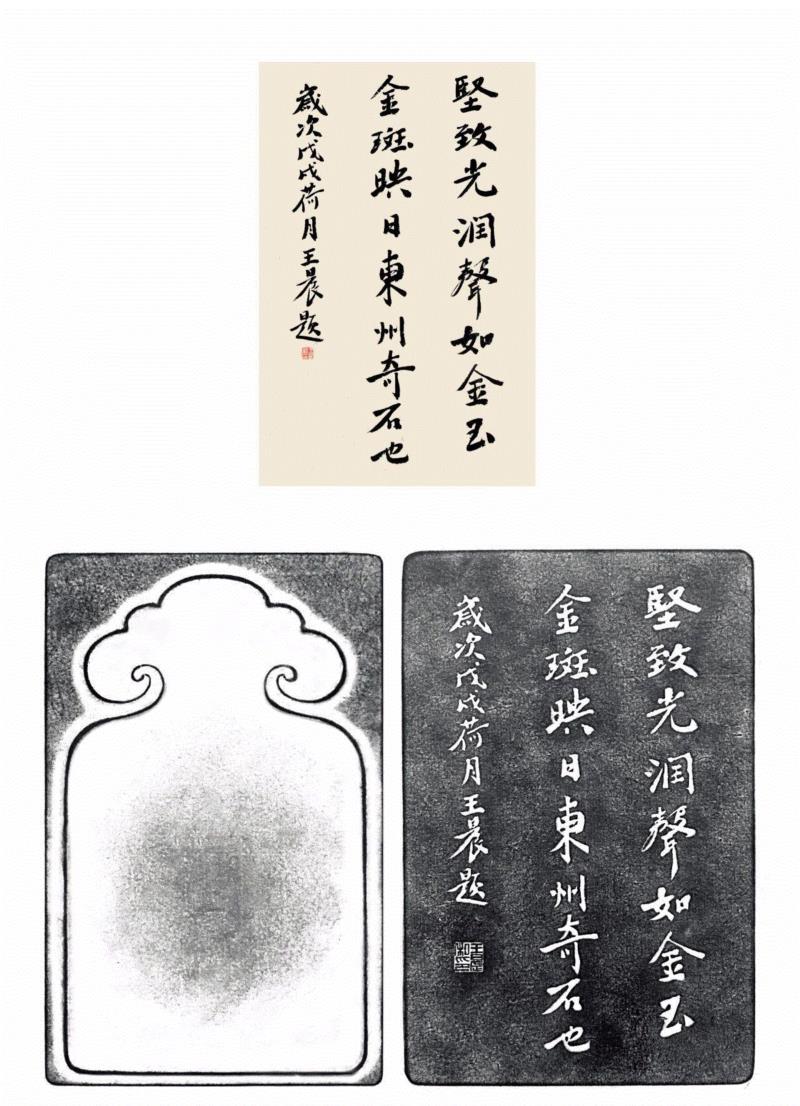 堅致光潤聲如金玉
金斑映日東州奇石也
歲次戊戌荷月王晨題
堅致光潤聲如金玉
金斑映日東州奇石也
歲次戊戌荷月王晨題